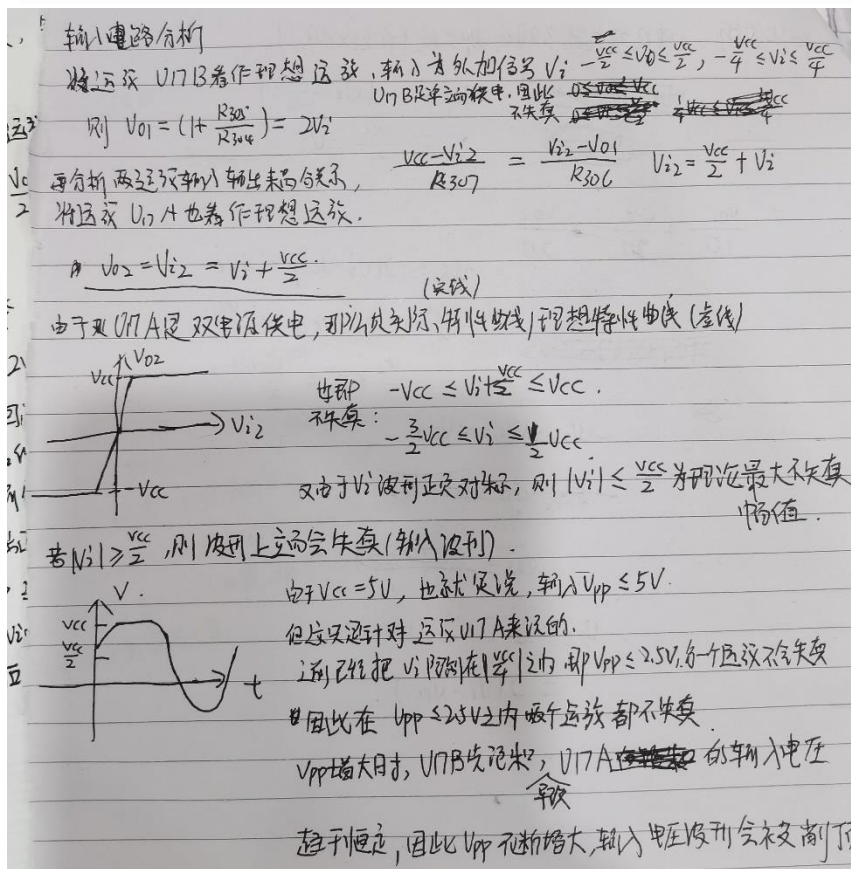 输入电路分析
将运放 U17B看作理想运放,输入为外加信号 Vi -Vcc/2 ≤ Vo ≤ Vcc/2, -Vcc/4 ≤ Vi ≤ Vcc/4
U17B是单立向供电,因此不失真
则 Vo1 = (1+ R305/R304) = 2Vi
再分析两运放输入输出来的关系,
(Vcc-Vi2)/R307 = (Vi2-Vo1)/R306 Vi2 = Vcc/2 + Vi
将运放 U17A也看作理想运放.
Vo2 = Vi2 = Vi + Vcc/2.
(实线)
由于 U17A是双电源供电,那么其实际特性曲线/理想特性曲线(虚线)
Vo2
Vcc
Vi2
-Vcc
也即不失真: -Vcc ≤ Vi+Vcc/2 ≤ Vcc.
-3/2 Vcc ≤ Vi ≤ 1/2 Vcc.
又由于Vi波形正负对称,则 |Vi| ≤ Vcc/2 为理论最大不失真幅值.
若|Vi| ≥ Vcc/2,则波形上立而会失真(输入波形).
V.
Vcc
Vcc/2
t
由于Vcc=5V,也就是说,输入Vpp ≤ 5V.
但这只是针对运放U17A来说的.
把Vi限制在|Vcc/4|之内 即Vpp ≤ 2.5V,另一个运放不会失真
因此在 Vpp ≤ 2.5V之内两个运放都不失真.
Vpp增大时,U17B先饱和,导致U17A的输入电压
趋于恒定,因此Vpp不断增大,输入电压波形会被削顶